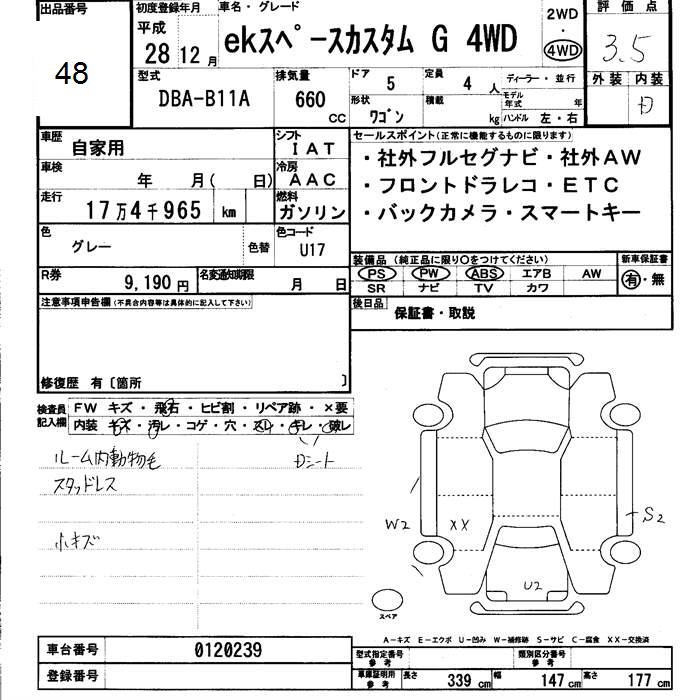 出品番号
48
初度登録年月
平成
28 12 月
車名・グレード
ekスペースカスタム G 4WD
2WD
・
4WD
評価点
3.5
外装 内装
D
型式
DBA-B11A
排気量
660
CC
ドア
5
定員
4 人
ディーラー・並行
形状
ワゴン
積載
kg
モデル
年式
年
ハンドル 左・右
車歴
自家用
シフト
IAT
車検
年 月( 日)
冷房
AAC
走行
17万4千965 km
燃料
ガソリン
色
グレー
色替
色コード
U17
R券
9,190 円
名変通知期限
月 日
セールスポイント(正常に機能するものに限ります)
・社外フルセグナビ・社外AW
・フロントドラレコ・ETC
・バックカメラ・スマートキー
装備品 (純正品に限り○をつけてください)
PS PW ABS エアB AW
SR ナビ TV カワ
新車保証書
有・無
後日品
保証書・取説
注意事項申告欄(不具合内容等は具体的に記入して下さい)
修復歴 有〔箇所 〕
検査員
記入欄
FW キズ・飛石・ヒビ割・リペア跡・×要
内装 キズ・汚レ・コゲ・穴・スレ・キレ・破レ
ルーム内動物毛
Dシート
スタッドレス
小キズ
W2
XX
S2
U2
スペア
A-キズ E-エクボ U-凹み W-補修跡 S-サビ C-腐食 XX-交換済
車台番号
0120239
登録番号
型式指定番号
参考
類別区分番号
参考
車庫証明用
参考
長さ
339 cm
幅
147 cm
高さ
177 cm